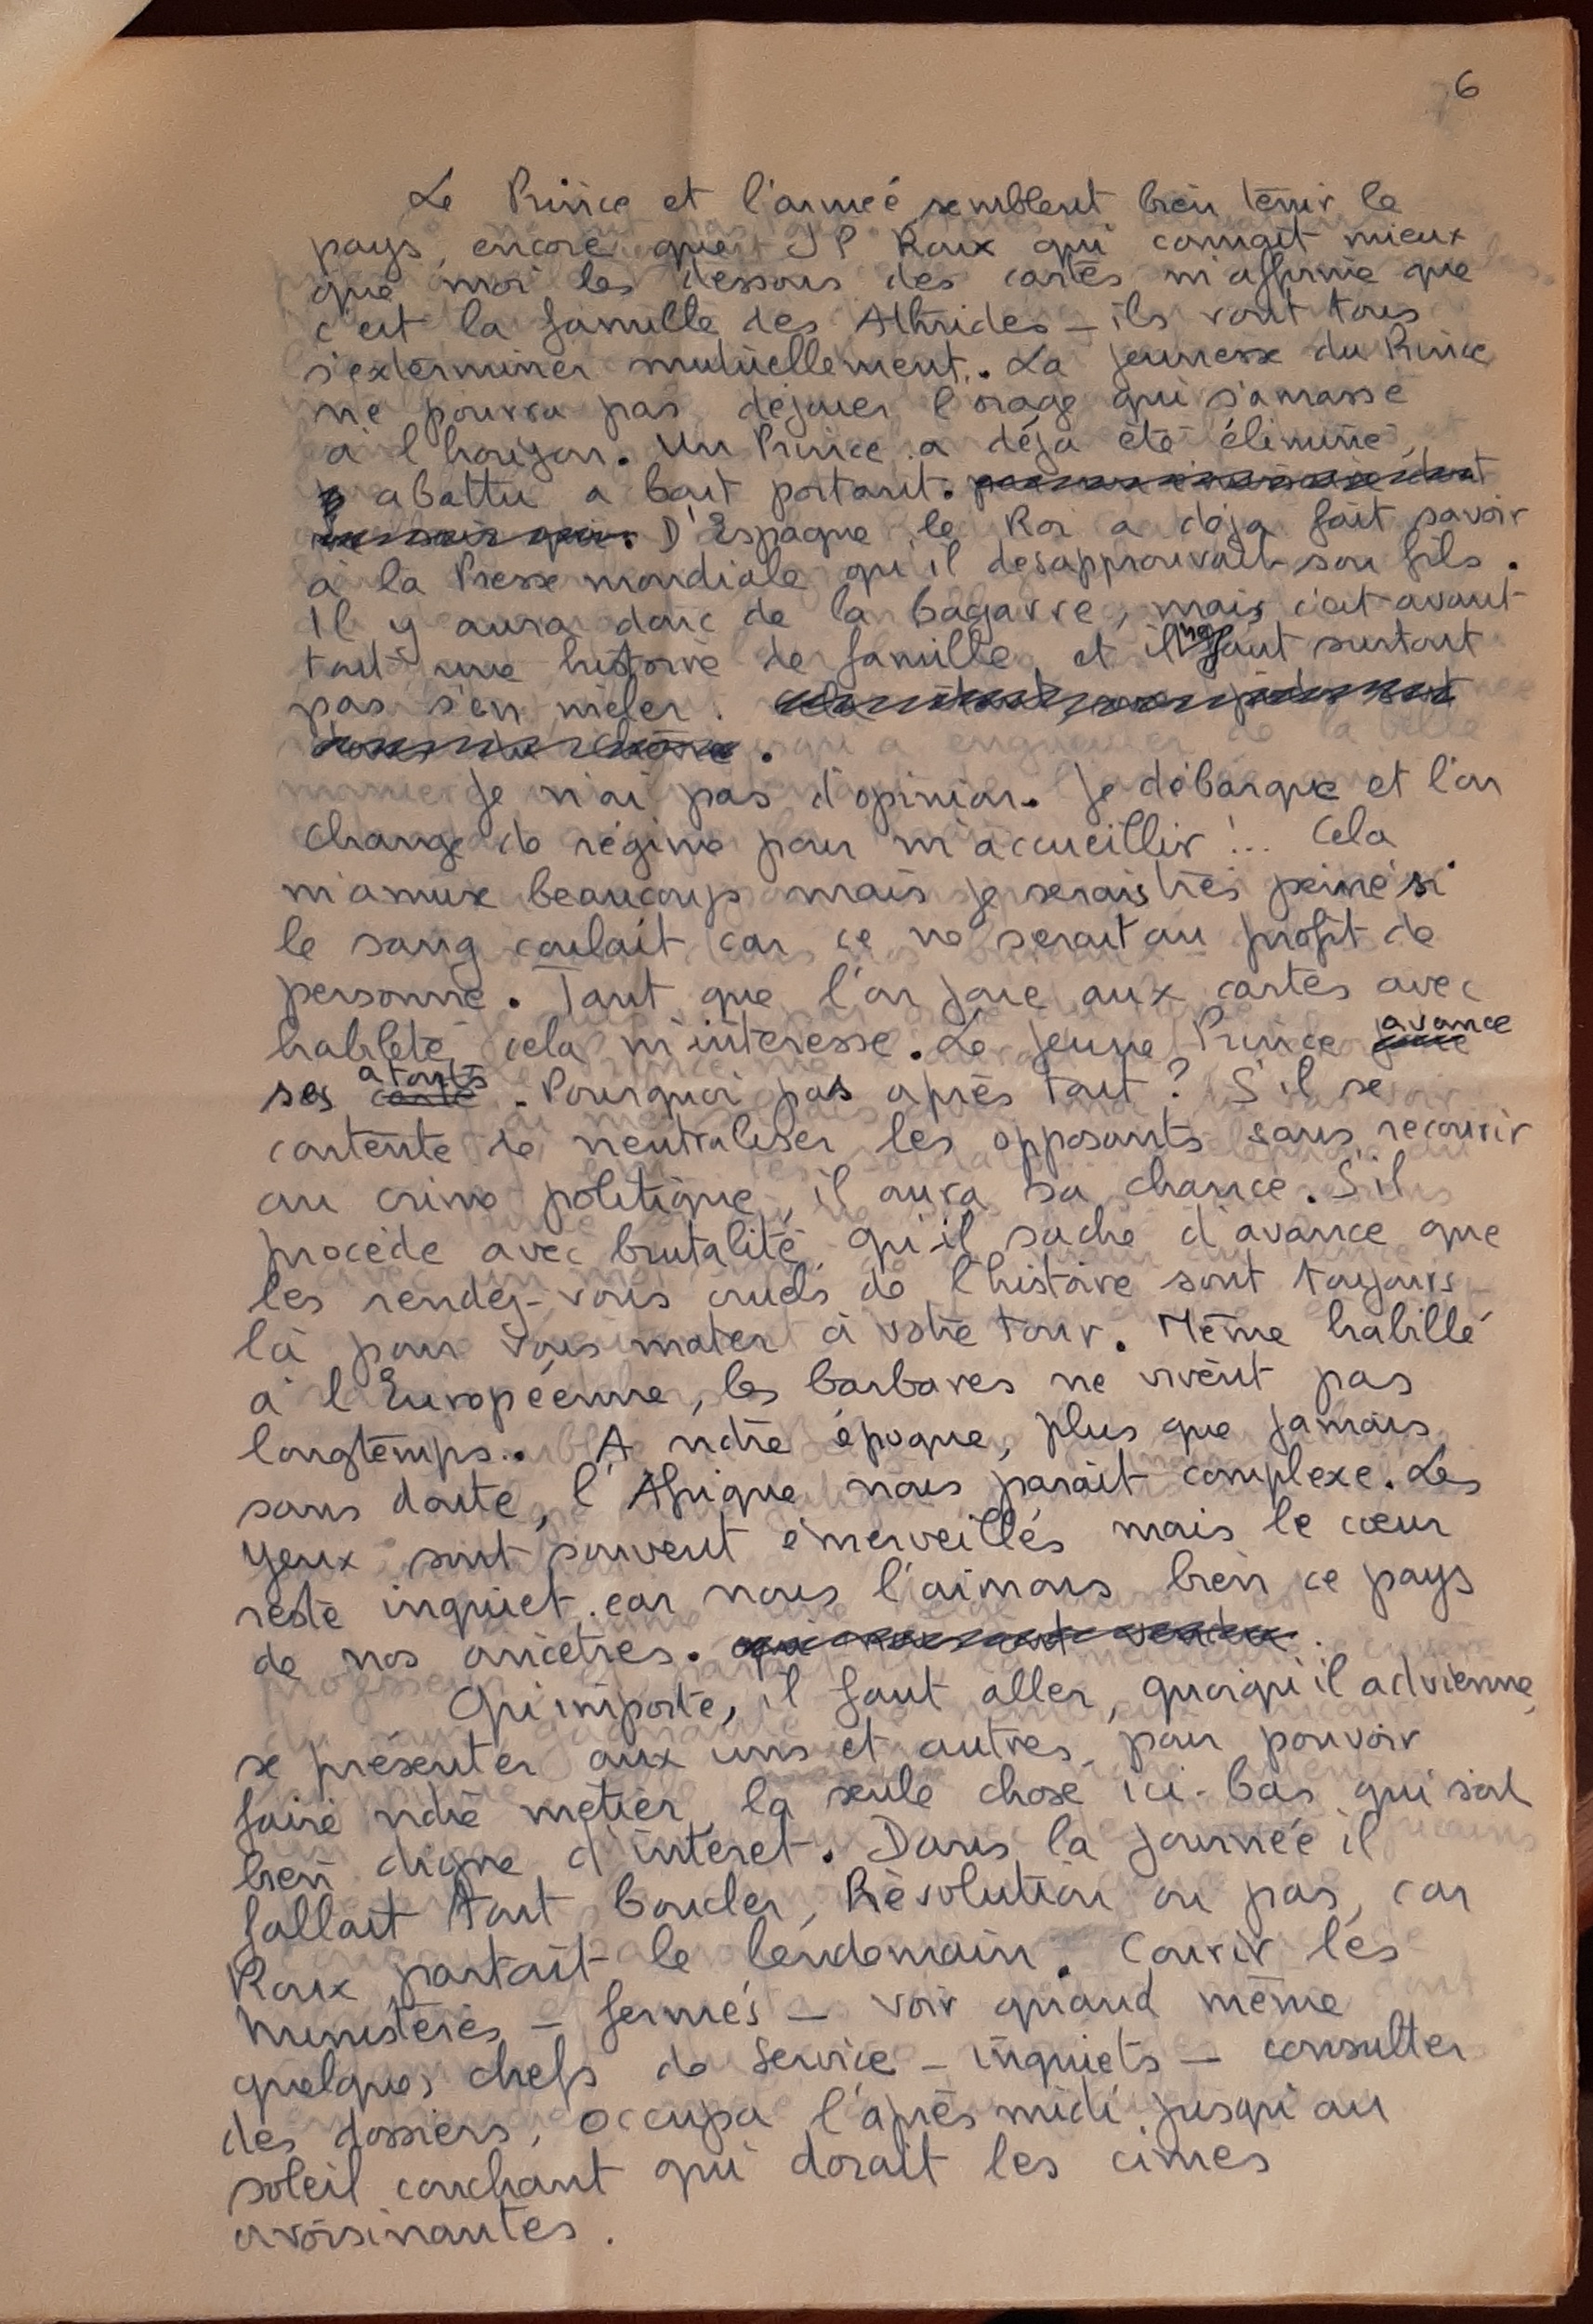 6
Le Prince et l'armée semblent bien tenir le
pays, encore que JP Roux qui connait mieux
que moi les dessous des cartes m'affirme que
c'est la famille des Athrides _ ils vont tous
s'exterminer mutuellement. La jeunesse du Prince
ne pourra pas déjouer l'orage qui s'amasse
à l'horizon. Un Prince a déjà été éliminé,
abattu a bout portant.
D'Espagne le Roi a déja fait savoir
à la Presse mondiale qu'il desapprouvait son fils.
Il y aura donc de la bagarre, mais c'est avant
tout une histoire de famille, et il ne faut surtout
pas s'en mêler.
Je n'ai pas d'opinion. Je débarque et l'on
change de régime pour m'accueillir !... Cela
m'amuse beaucoup mais je serais très peiné si
le sang coulait car ce ne serait au profit de
personne. Tant que l'on joue aux cartes avec
habileté, cela m'intéresse. Le jeune Prince avance
ses atouts. Pourquoi pas après tout ? S'il se
contente de neutraliser les opposants sans recourir
au crime politique, il aura sa chance. S'il
procède avec brutalité, qu'il sache d'avance que
les rendez-vous cruels de l'histoire sont toujours
là pour vous mater à votre tour. Même habillé
à l'Européenne, les barbares ne vivent pas
longtemps. A notre époque, plus que jamais
sans doute, l'Afrique nous parait complexe. Les
yeux sont souvent émerveillés mais le cœur
reste inquiet car nous l'aimons bien ce pays
de nos ancêtres.
Qu'importe, il faut aller, quoiqu'il advienne,
se présenter aux uns et autres, pour pouvoir
faire notre métier, la seule chose ici-bas qui soit
bien digne d'intérêt. Dans la journée il
fallait tout boucler, Révolution ou pas, car
Roux partait le lendemain. Courir les
Ministères _ fermés _ voir quand même
quelques chefs de Service _ inquiets _ consulter
des dossiers, occupa l'après midi jusqu'au
soleil couchant qui dorait les cimes
avoisinantes.